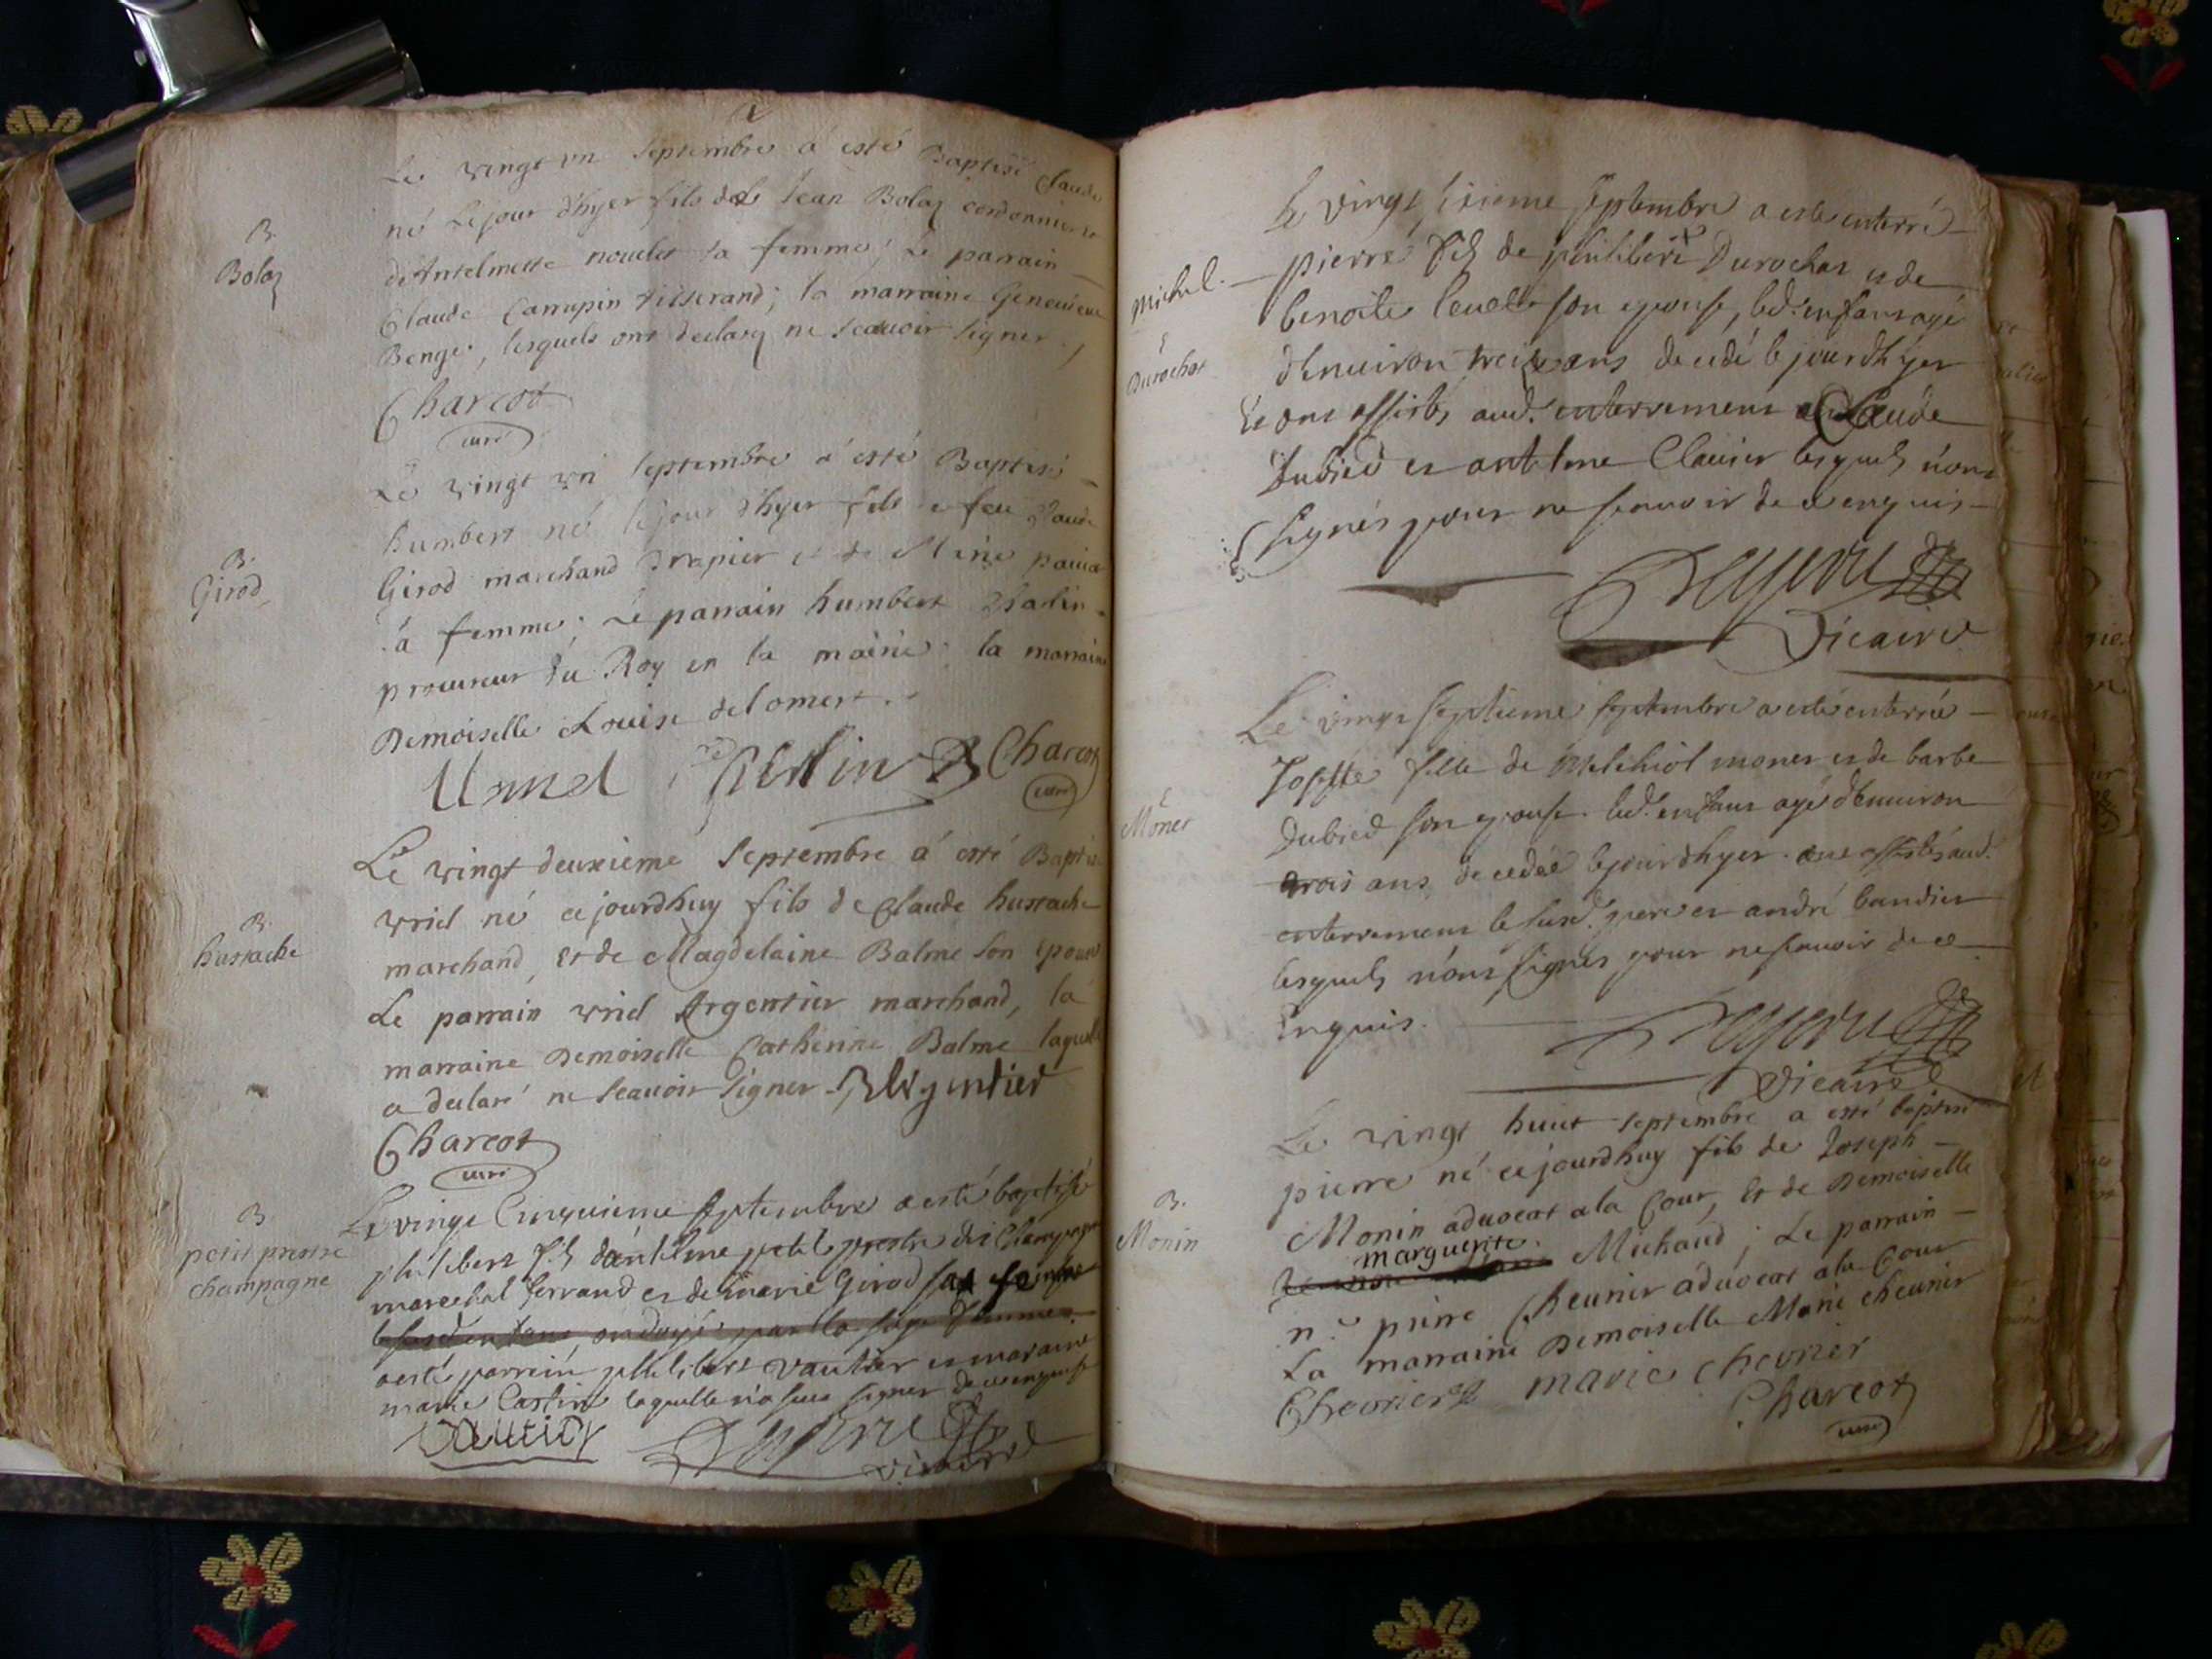 Le vingt un Septembre a esté Baptisé Claude
né Le jour d'hyer fils de Jean Bolaz cordonnier et
B.
Bolaz
d'Antelmette nouclet sa femme; Le parrain
Claude Carrupin tisserand; la marraine Geneuieue
Benge, lesquels ont declaré ne scauoir signer
Charcot
curé
Le vingt un septembre a esté Baptisé
humbert né le jour d'hyer fils a feu Claude
B.
Girod
Girod marchand Drapier et de
sa femme; Le parrain humbert
procureur du Roy en la mairie; la marraine
Demoiselle Louise delomert.
Charcot
curé
Le vingt deuxieme Septembre a esté Baptisé
vriel né ce jourdhuy fils de Claude hustache
B.
hustache
marchand, et de Magdelaine Balme son epouse
Le parrain vriel Argentier marchand, la
marraine Demoiselle Catherine Balme laquelle
a declaré ne scauoir signer Argentier
Charcot
curé
Le vingt Cinquieme septembre a esté baptisé
B.
petit prestre
champagne
philibert fils d'antelme petit prestre dit Champagne
marechal ferrand et de marie Girod sa femme
a esté parrein philibert vautier et maraine
marie laquelle n'a sceu signer de ce enquise
Vautier
vicaire
le vingt sixieme septembre a esté enterré
Michel.
pierre fils de philibert Durochat et de
E
Durochat
benoite son epouse, led. enfant agé
d'enuiron treize ans decedé le jourdhyer
Et ont assistés aud. enterrement Claude
Dubied et antelme Clauier lesquels n'ont
signés pour ne scauoir de ce enquis
Vicaire
Le vingt septieme septembre a esté enterrée
Josette fille de Melchiol moner et de barbe
E
Moner
Dubied son epouse. led. enfant agé d'enuiron
trois ans decedée le jourdhyer. ont assistés aud.
enterrement le susd. pere et andré baudier
lesquels n'ont signés pour ne scauoir de ce
enquis.
Vicaire
Le vingt huit septembre a esté baptisé
pierre né ce jourdhuy fils de Joseph
B.
Monin
Monin aduocat a la Cour, Et de Demoiselle
marguerite Michaud; Le parrain
n.e pierre Cheurier aduocat a la Cour
La marraine Demoiselle Marie cheurier
Chevrier marie chevrier
Charcot
curé